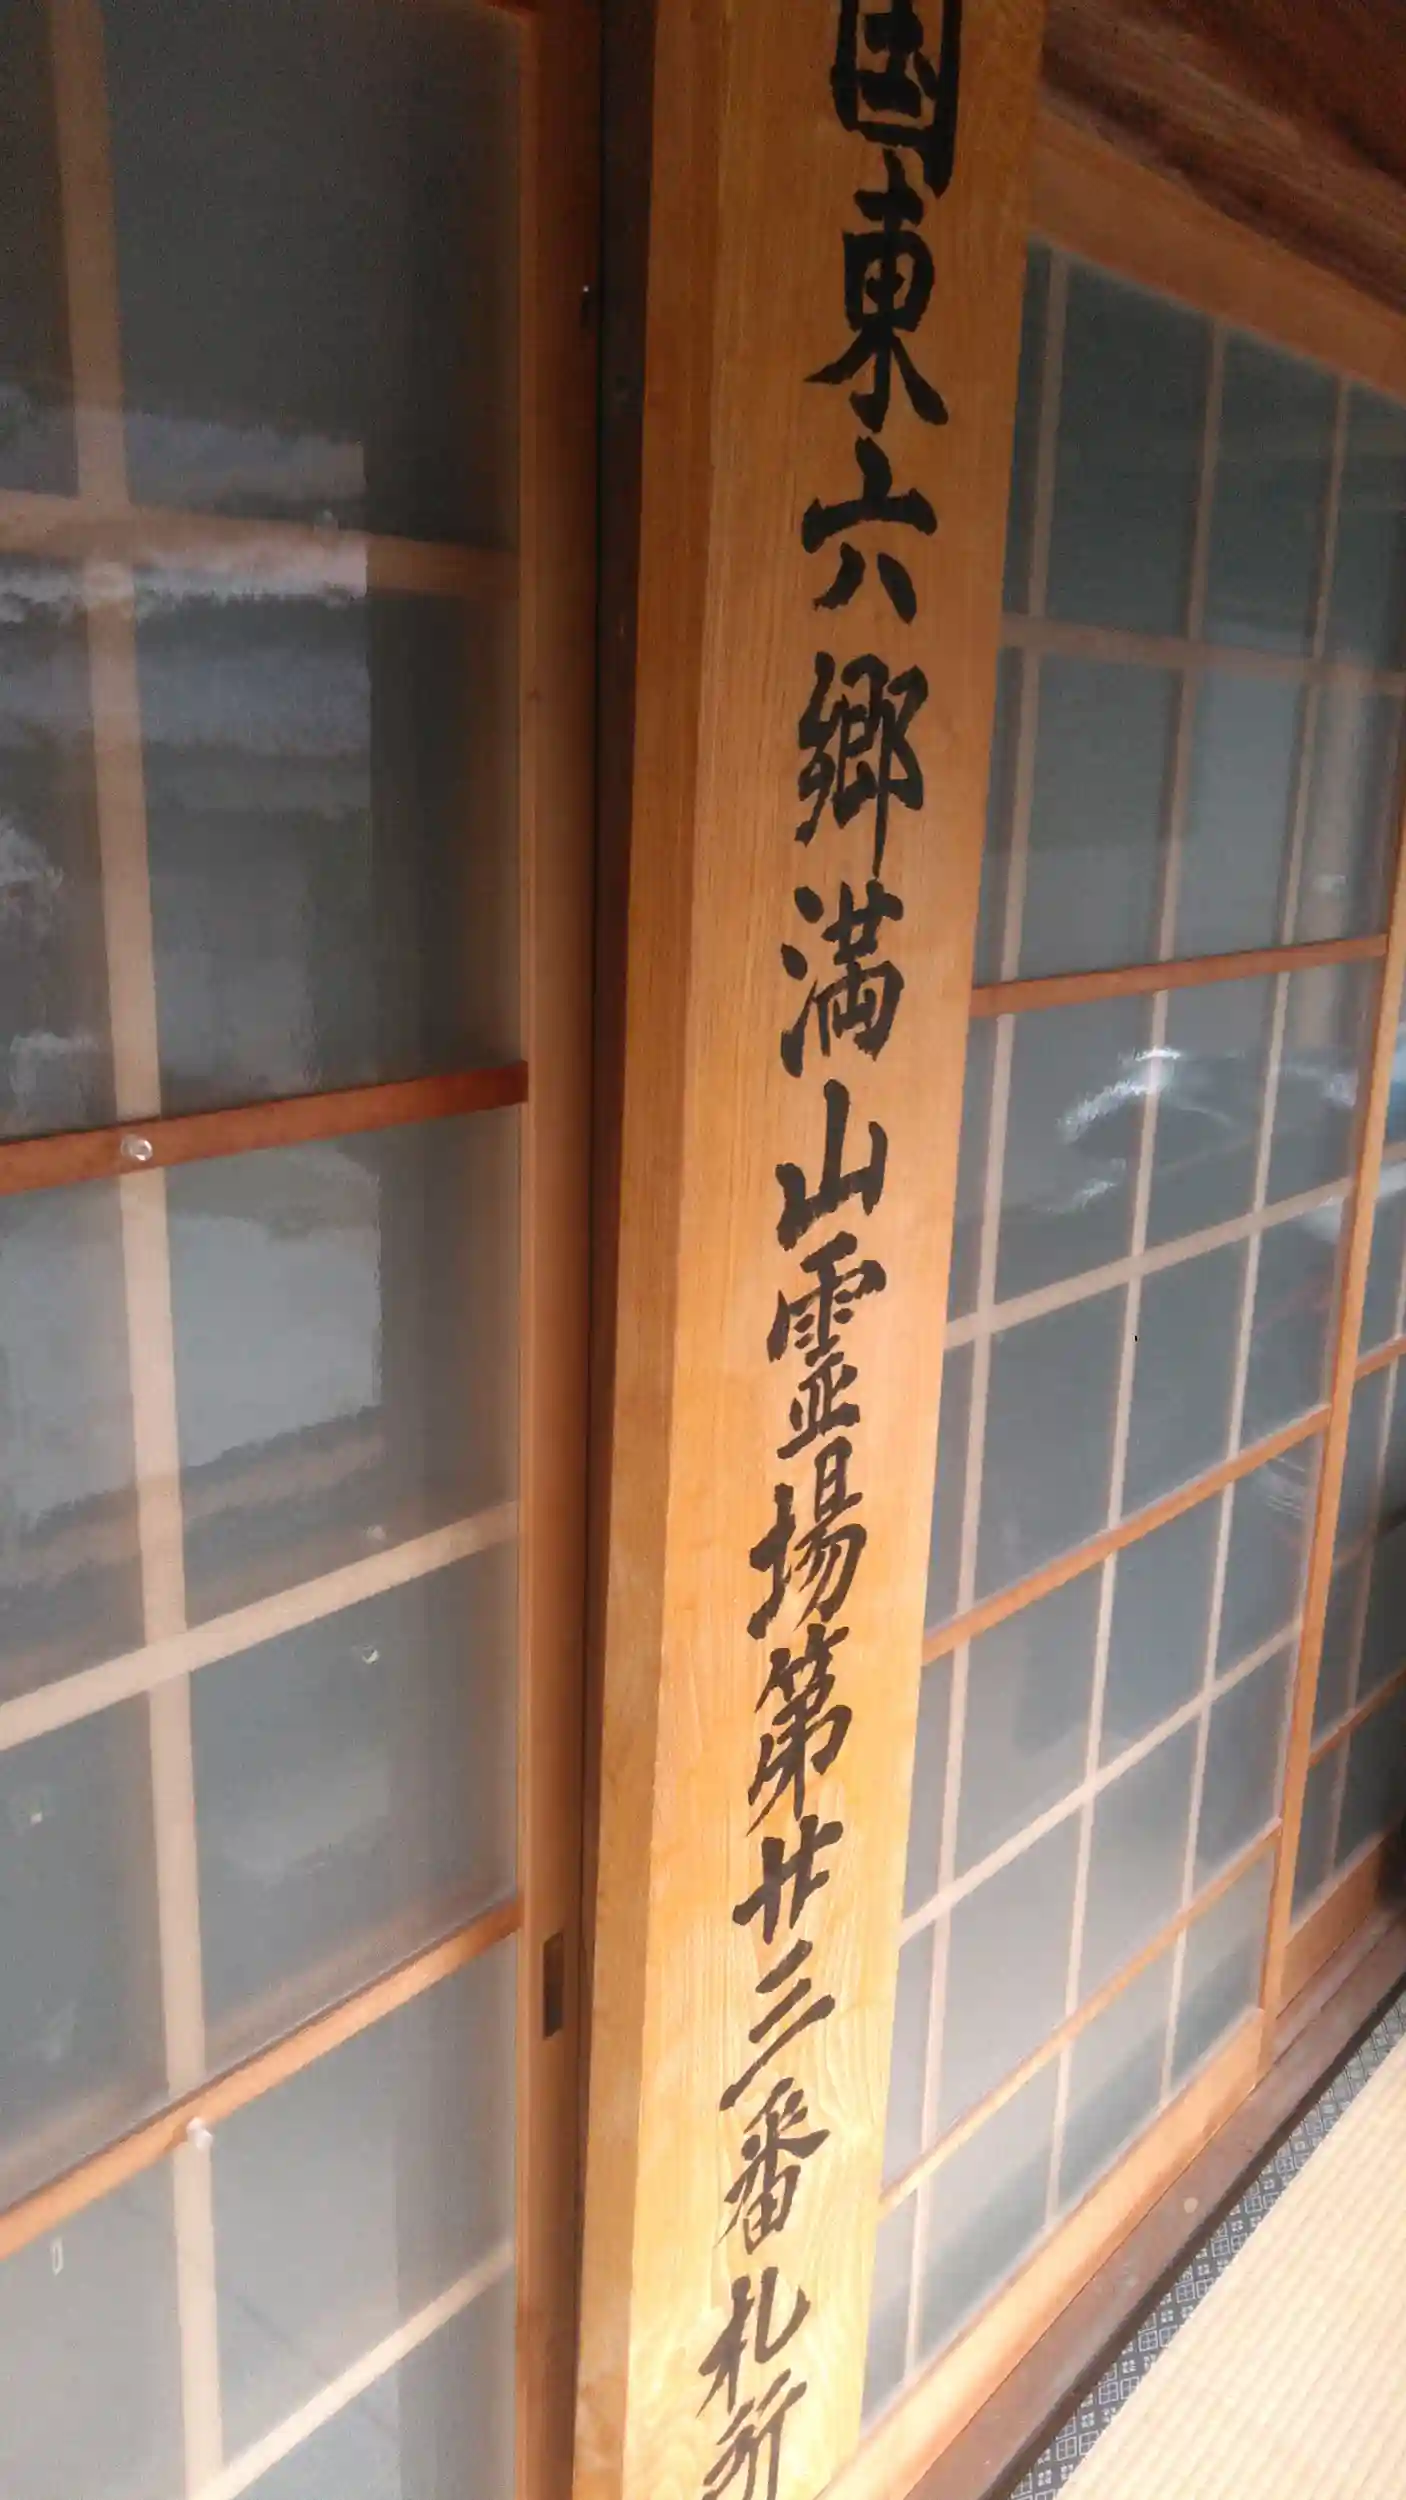 国東六郷満山霊場第廿三番札所